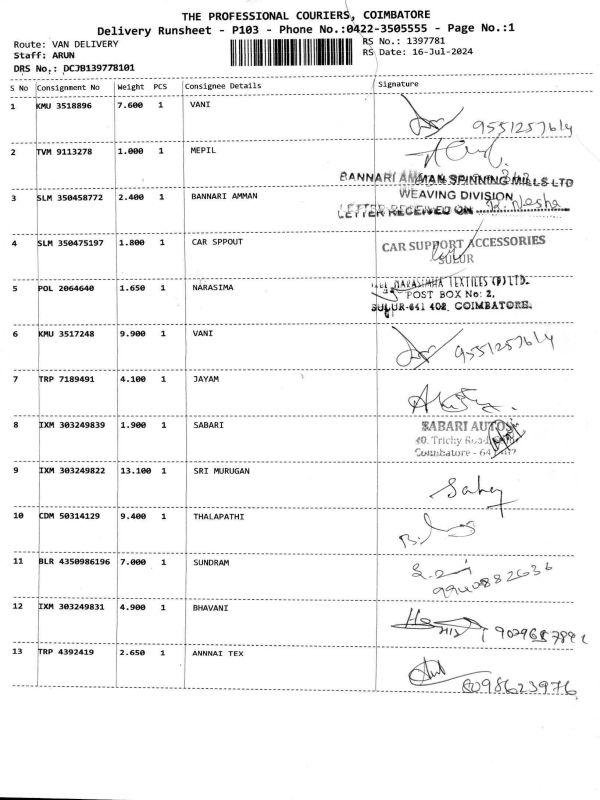 THE PROFESSIONAL COURIERS, COIMBATORE
Delivery Runsheet - P103 - Phone No.:0422-3505555 - Page No.:1
Route: VAN DELIVERY RS No.: 1397781
Staff: ARUN RS Date: 16-Jul-2024
DRS No.: DCJB139778101
S No Consignment No Weight PCS Consignee Details Signature
1 KMU 3518896 7.600 1 VANI
9551257614
2 TVM 9113278 1.000 1 MEPIL
BANNARI AMMAN SPINNING MILLS LTD
3 SLM 350458772 2.400 1 BANNARI AMMAN WEAVING DIVISION
LETTER RECEIVED ON
4 SLM 350475197 1.800 1 CAR SPPOUT CAR SUPPORT ACCESSORIES
SULUR
5 POL 2064640 1.650 1 NARASIMA NARASIMHA TEXTILES (P) LTD.
POST BOX No: 2,
SULUR-641 402, COIMBATORE.
6 KMU 3517248 9.900 1 VANI 9551257614
7 TRP 7189491 4.100 1 JAYAM
8 IXM 303249839 1.900 1 SABARI SABARI AUTOS
40, Trichy Road
Coimbatore - 641 402
9 IXM 303249822 13.100 1 SRI MURUGAN
10 CDM 50314129 9.400 1 THALAPATHI
11 BLR 4350986196 7.000 1 SUNDRAM
12 IXM 303249831 4.900 1 BHAVANI
13 TRP 4392419 2.650 1 ANNNAI TEX
8098623976